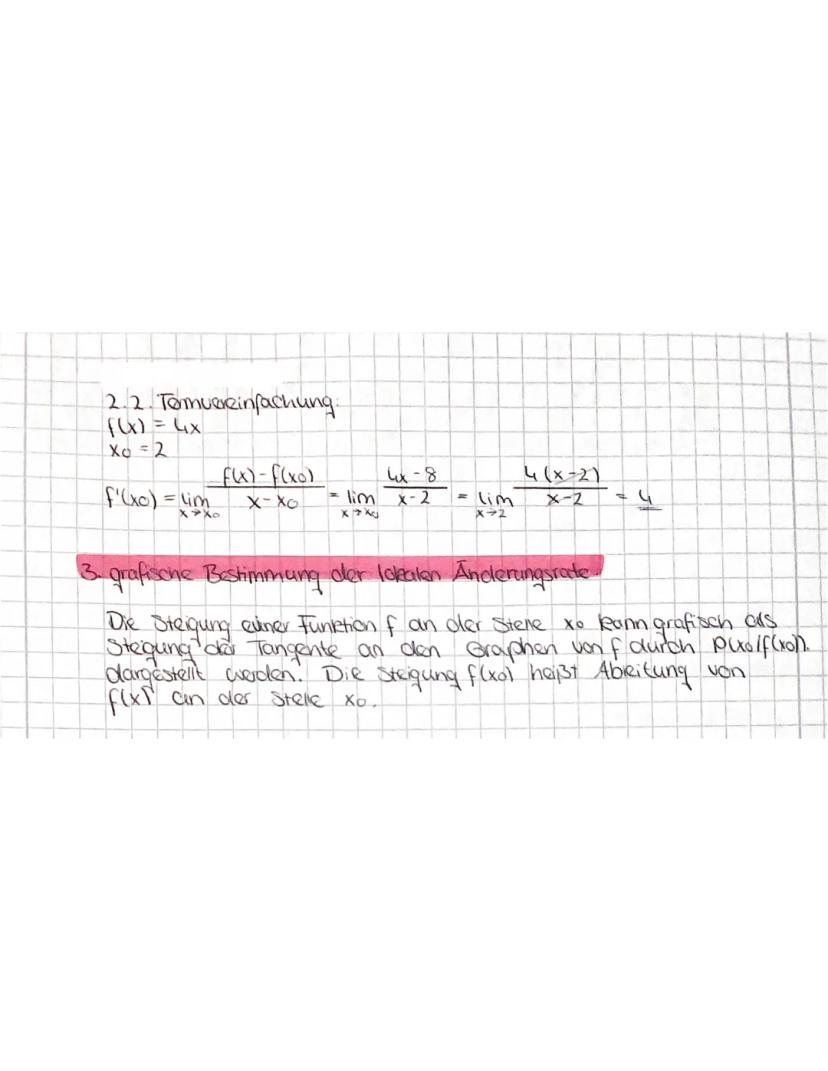 2.2. Termvereinfachung:
f(x) = 4x
x₀ = 2
f'(x₀) = lim x→x₀ f(x)-f(x₀) / x-x₀ = lim x→x₀ 4x-8 / x-2 = lim x→2 4(x-2) / x-2 = 4
3. grafische Bestimmung der lokalen Änderungsrate
Die Steigung einer Funktion f an der Stelle x₀ kann grafisch als
Steigung der Tangente an den Graphen von f durch P(x₀|f(x₀)).
dargestellt werden. Die Steigung f(x₀) heißt Ableitung von
f(x) an der Stelle x₀.